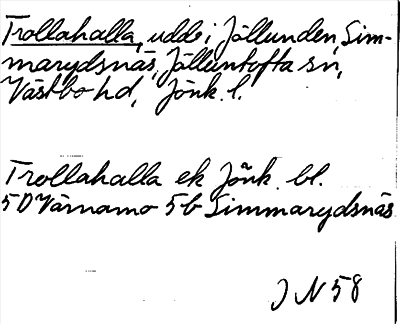 Trollahalla, udde i Jällunden, Sim-
marydsnäs, Jälluntofta sn,
Västbo hd, Jönk. l.
Trollahalla ek Jönk. bl.
5 D Värnamo 5b Simmarydsnäs
J N 58